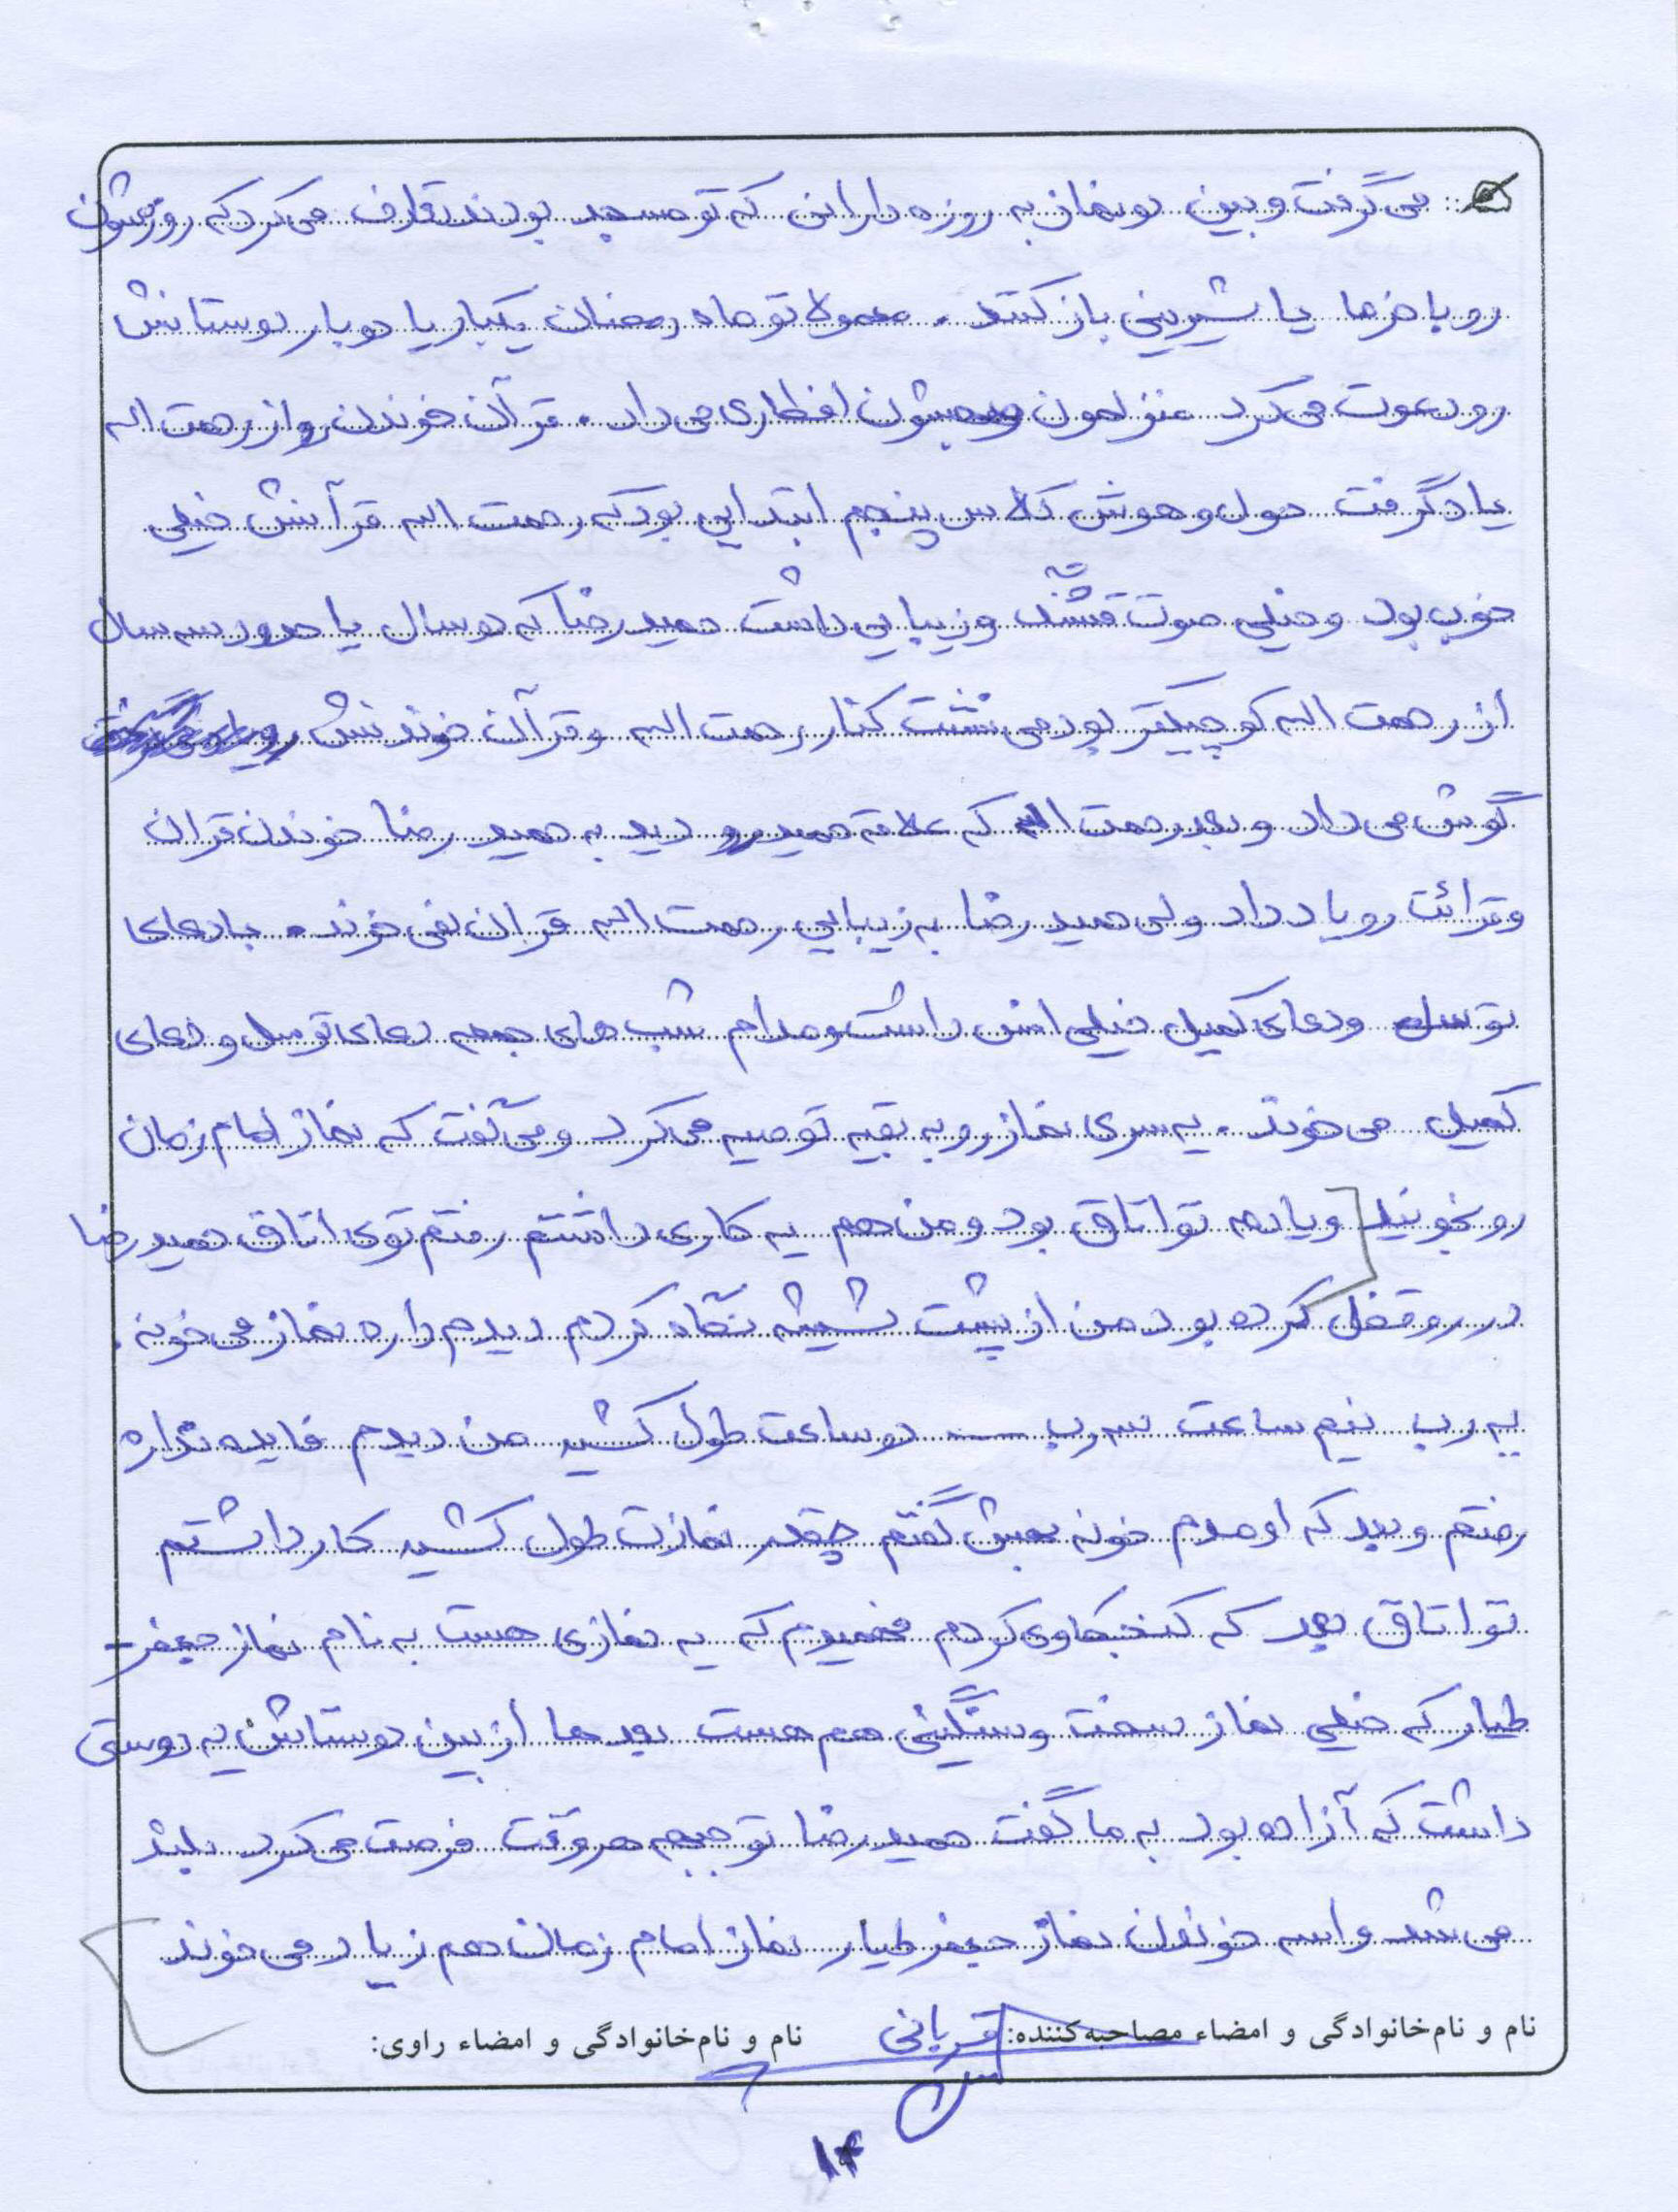 می‌گرفت و بین دو نماز به روزه دارانی که تو مسجد بودند تعارف می‌کرد که روزشون
رو با خرما یا شیرینی باز کنند. معمولا تو ماه رمضان یکبار یا دوبار دوستانش
رو دعوت می‌کرد منزلمون و بهشون افطاری می‌داد. قرآن خوندن رو از رحمت اله
یاد گرفت حول و هوش کلاس پنجم ابتدایی بود که رحمت اله قرآنش خیلی
خوب بود و خیلی صوت قشنگ و زیبایی داشت حمیدرضا که دو سال یا حدود سه سال
از رحمت اله کوچیکتر بود می‌نشت کنار رحمت اله و قرآن خوندنش رو
گوش می‌داد و بعد رحمت اله که علاقه حمید رو دید به حمید رضا خوندن قران
و قرائت رو یاد داد ولی حمید رضا به زیبایی رحمت اله قران نمی خوند. با دعای
توسل و دعای کمیل خیلی انس داشت و مدام شب های جمعه دعای توسل و دعای
کمیل می خوند. یه سری نماز رو به بقیه توصیه می کرد و می گفت که نماز امام زمان
رو بخونید و یادمه تو اتاق بود و من هم یه کاری داشتم رفتم توی اتاق حمید رضا
در رو قفل کرده بود من از پشت شیشه نگاه کردم دیدم داره نماز می خونه.
یه رب نیم ساعت سه رب ـــ دو ساعت طول کشید من دیدم فایده نداره
رفتم و بعد که اومدم خونه بهش گفتم چقدر نمازت طول کشید کار داشتم
تو اتاق بعد که کنجکاوی کردم فهمیدم که یه نمازی هست به نام نماز جعفر
طیار که خیلی نماز سخت و سنگینی هم هست بعد ها از بین دوستاش یه دوستی
داشت که آزاده بود به ما گفت حمید رضا تو جبهه هر وقت فرصت می کرد بلند
می شد واسه خوندن نماز جعفر طیار نماز امام زمان هم زیاد می خوند
نام و نام‌خانوادگی و امضاء مصاحبه‌کننده: قربانی نام و نام‌خانوادگی و امضاء راوی:
۱۴